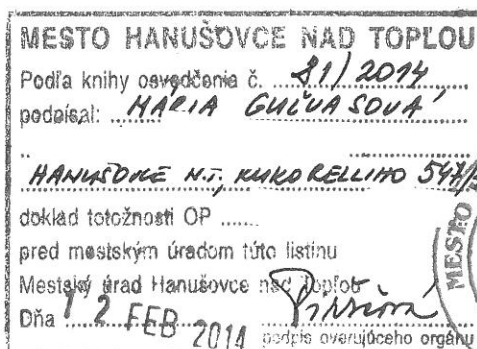 MESTO HANUŠOVCE NAD TOPĽOU
Podľa knihy osvedčenia č. 81/2014
podpísal: MÁRIA
HANUŠOVCE N.T., KUKORELLIHO
doklad totožnosti OP ......
pred mestským úradom túto listinu
Mestský úrad Hanušovce nad Topľou
Dňa 12 FEB 2014
podpis overujúceho orgánu
MESTO